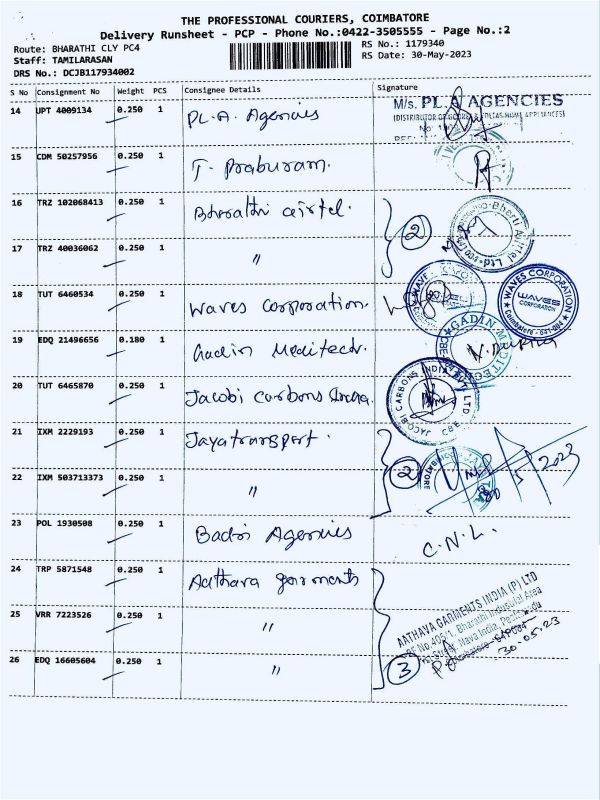 THE PROFESSIONAL COURIERS, COIMBATORE
Delivery Runsheet - PCP - Phone No.:0422-3505555 - Page No.:2
Route: BHARATHI CLY PC4
RS No.: 1179340
Staff: TAMILARASAN
RS Date: 30-May-2023
DRS No.: DCJB117934002
S No Consignment No Weight PCS Consignee Details Signature
14 UPT 4009134 0.250 1 PL.A. Agencies
M/s. PL.A AGENCIES
15 CDM 50257956 0.250 1 T. Praburam.
16 TRZ 102068413 0.250 1 Bharathi airtel. 2
Bharti Airtel Ltd
17 TRZ 40036062 0.250 1 "
18 TUT 6460534 0.250 1 Waves Corporation.
WAVES CORPORATION
WAVES
CORPORATION
Coimbatore - 641 004
19 EDQ 21496656 0.180 1 Gadin Meditech.
GADIN MEDITECH
20 TUT 6465870 0.250 1 Jacobi Carbons India.
JACOBI CARBONS INDIA PVT LTD
CBE
21 IXM 2229193 0.250 1 Jayatransport. 2
22 IXM 503713373 0.250 1 "
23 POL 1930508 0.250 1 Badri Agencies
C.N.L.
24 TRP 5871548 0.250 1 Aathava garments
25 VRR 7223526 0.250 1 "
AATHAVA GARMENTS INDIA (P) LTD
Bharathi Industrial Area
Nava India,
30-05-23
26 EDQ 16605604 0.250 1 " 3